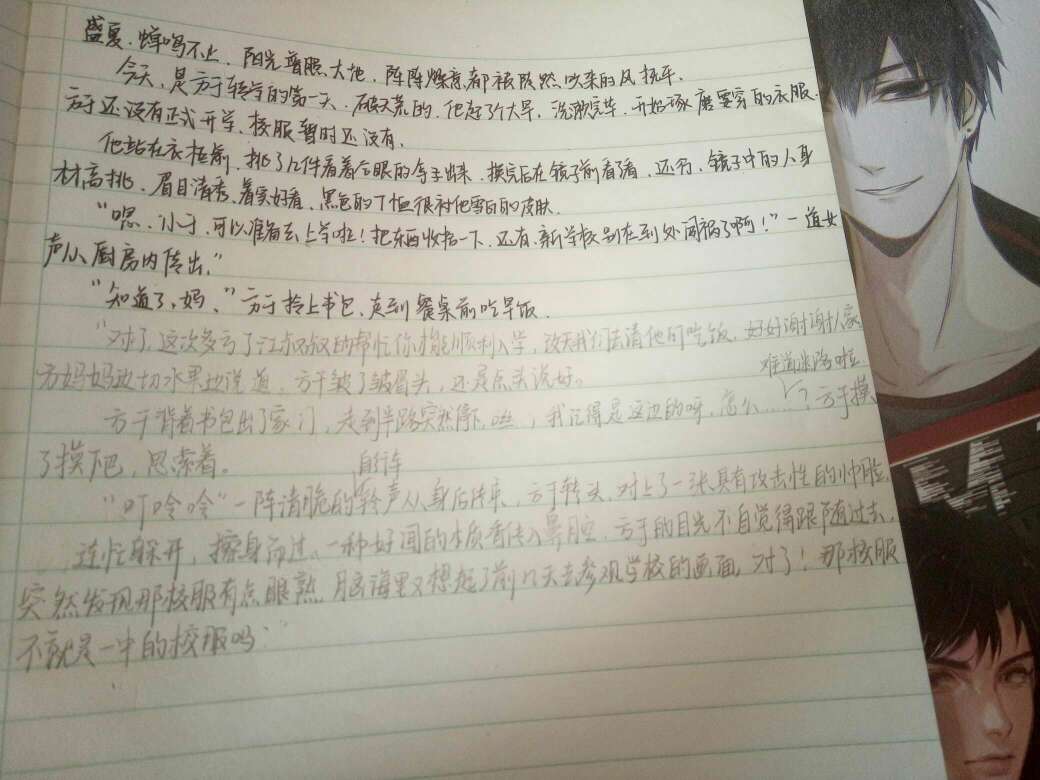 盛夏.蝉鸣不止，阳光普照大地，阵阵燥意都被既然吹来的风抚平.
今天，是方于转学的第一天，破天荒的，他起了个大早，洗漱完毕，开始琢磨要穿的衣服.
方于还没有正式开学、校服暂时还没有.
他站在衣柜前，挑了几件看着合眼的拿出来，换完后在镜子前看了看，还行，镜子中的人身
材高挑，眉目清秀，着实好看，黑色的T恤很衬他雪白的皮肤.
“嗯，小于，可以准备去上学啦！把东西收拾一下，还有，新学校别在到处闯祸了啊！”一道女
声从厨房内传出，”
“知道了，妈，”方于拎上书包，走到餐桌前吃早饭.
“对了，这次多亏了江叔叔的帮忙你才能顺利入学，改天我们去请他们吃饭，好好谢谢人家
方妈妈边切水果边说道，方于皱了皱眉头，还是点头说好。
难道迷路啦
方于背着书包出了家门，走到半路突然停下，我记得是这边的呀，怎么……？方于摸
了摸下巴，思索着。
自行车
“叮呤呤”一阵清脆的铃声从身后传来，方于转头，对上了一张具有攻击性的帅脸，
连忙躲开，擦身而过、一种好闻的木质香传入鼻腔，方于的目光不自觉得跟随过去，
突然发现那校服有点眼熟，脑海里又想起了前几天去参观学校的画面，对了！那校服
不就是一中的校服吗